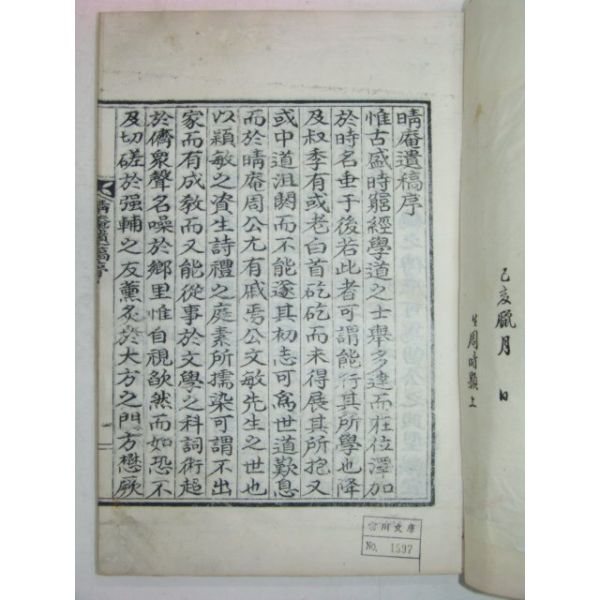 己亥臘月 日
生周時顯上
晴庵遺稿序
惟古盛時窮經學道之士舉多達而在位澤加
於時名垂于後若此者可謂能行其所學也降
及叔季有或老白首矻矻而未得展其所抱又
或中道沮閼而不能遂其初志可爲世道歎息
而於晴庵周公尤有戚焉公文敏先生之世也
以穎敏之資生詩禮之庭素所擩染可謂不出
家而有成教而又能從事於文學之科詞術超
於儕衆聲名噪於鄉里惟自視欿然而如恐不
及切磋於强輔之友薰炙於大方之門方懋厥
晴庵遺稿序
文庫
No. 1597